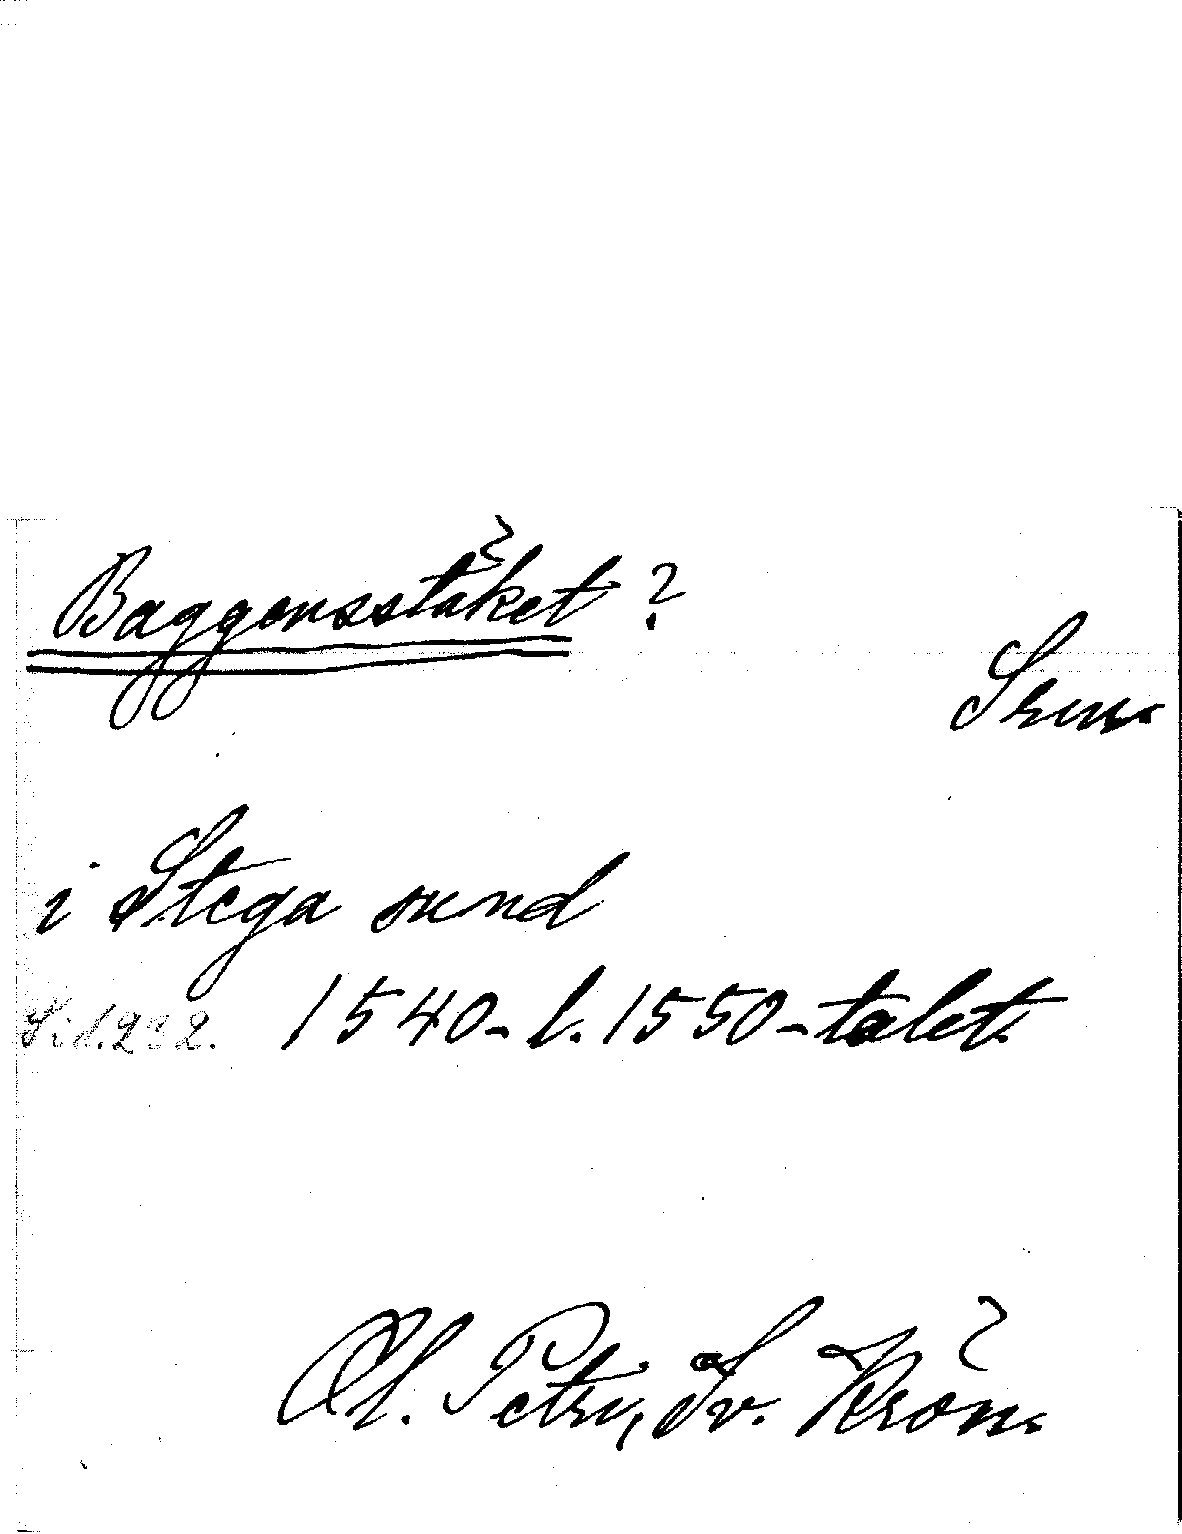 Baggensstäket?
Srm.
i Stega sund
Sid. 232. 1540- l. 1550-talet.
Ol. Petri, Sv. Krön.